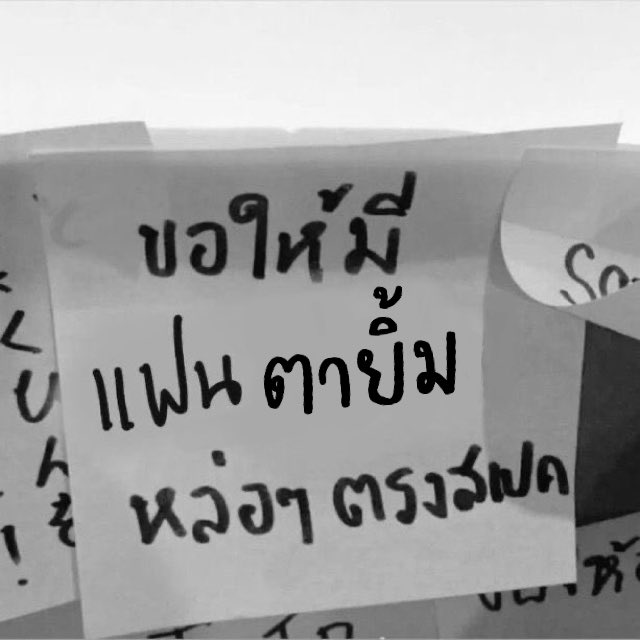 ขอให้มี
แฟน ตายิ้ม
หล่อๆ ตรงสเปค